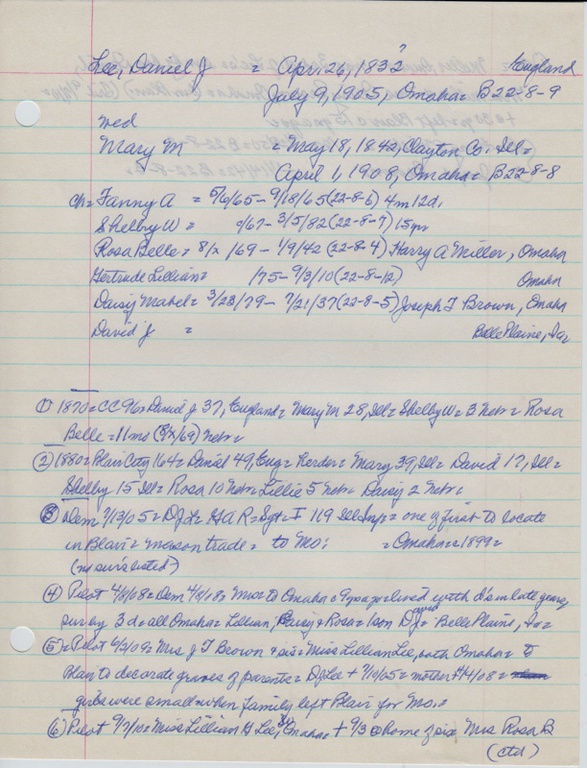 Lee, Daniel J = Apr. 26, 1832? England
July 9, 1905, Omaha = B22-8-9
wed
Mary M = May 18, 1842, Clayton Co. Ill =
April 1, 1908, Omaha = B22-8-8
ch = Fanny A = 5/6/65 - 9/18/65 (22-8-6) 4m 12d.
Shelby W = /67 - 3/5/82 (22-8-7) 15 yrs
Rosa Belle = 8/x /69 - 1/9/42 (22-8-4) Harry A Miller, Omaha
Gertrude Lillian = /75 - 9/3/10 (22-8-12) Omaha
Daisy Mabel = 3/23/79 - 7/21/37 (22-8-5) Joseph T Brown, Omaha
David J = Belle Plaine, Ia
① 1870 = CC 96 = Daniel J 37, England = Mary M 28, Ill = Shelby W = 3 Nebr = Rosa
Belle = 11 mo (8/x/69) Nebr =
② 1880 = Blair City 164 = Daniel 49, Eng = Mary 39, Ill = David 17, Ill =
Shelby 15 Ill = Rosa 10 Nebr = Lillie 5 Nebr = Daisy 2 Nebr =
③ Dem 7/13/05 = DJL = GAR = Sgt = I 119 Ill Inf = one of first to locate
in Blair = mason trade = to Mo. = Omaha = 1899 =
(no surv listed)
④ Pilot 4/8/08 = Dem = Mo to Omaha = 9 yrs ago = lived with d's in late years
surv by 3 d = all Omaha = Lillian, Daisy & Rosa = 1 son DJ = Belle Plaine, Ia =
⑤ = Pilot 6/2/09 = Mrs J T Brown & sis = Miss Lillian Lee, both Omaha = to
Blair to decorate graves of parents = DJ Lee + 7/9/05 = mother + 4/08 =
girls were small when family left Blair for Mo. =
⑥ Pilot 9/7/10 = Miss Lillian G Lee, Omaha + 9/3 @ home of sis Mrs Rosa B
(ctd)